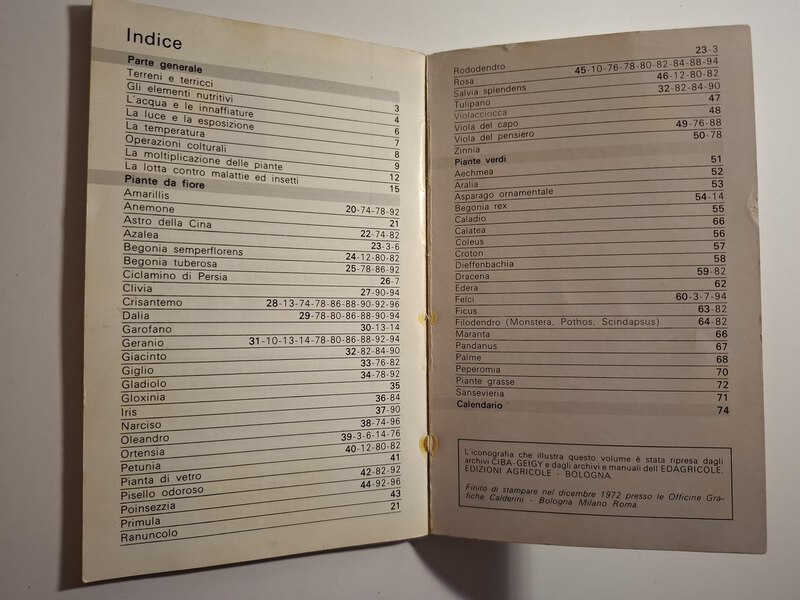 Indice
Parte generale
Terreni e terricci 3
Gli elementi nutritivi 4
L'acqua e le innaffiature 6
La luce e la esposizione 7
La temperatura 8
Operazioni colturali 9
La moltiplicazione delle piante 12
La lotta contro malattie ed insetti 15
Piante da fiore
Amarillis 20-74-78-92
Anemone 21
Astro della Cina 22-74-82
Azalea 23-3-6
Begonia semperflorens 24-12-80-82
Begonia tuberosa 25-78-86-92
Ciclamino di Persia 26-7
Clivia 27-90-94
Crisantemo 28-13-74-78-86-88-90-92-96
Dalia 29-78-80-84-94-96
Garofano 30-13-14
Geranio 31-10-13-14-78-80-86-88-92-94
Giacinto 32-82-84-90
Giglio 33-76-82
Gladiolo 34-78-92
Gloxinia 35
Iris 36-84
Narciso 37-90
Oleandro 38-74-96
Ortensia 39-3-6-14-76
Petunia 40-12-80-82
Pianta di vetro 41
Pisello odoroso 42-82-92
Poinsezzia 44-92-96
Primula 43
Ranuncolo 21
Rododendro 23-3
Rosa 45-10-76-78-80-82-84-88-94
Salvia splendens 46-12-80-82
Tulipano 32-82-84-90
Violacciocca 47
Viola del capo 48
Viola del pensiero 49-76-88
Zinnia 50-78
Piante verdi
Aechmea 51
Aralia 52
Asparago ornamentale 53
Begonia rex 54-14
Caladio 55
Calatea 66
Coleus 56
Croton 57
Dieffenbachia 58
Dracena 59-82
Edera 62
Felci 60-3-7-94
Ficus 63-82
Filodendro (Monstera, Pothos, Scindapsus) 64-82
Maranta 66
Pandanus 67
Palme 68
Peperomia 70
Piante grasse 72
Sansevieria 71
Calendario 74
L'iconografia che illustra questo volume è stata ripresa dagli
archivi CIBA-GEIGY e dagli archivi e manuali dell'EDAGRICOLE,
EDIZIONI AGRICOLE - BOLOGNA.
Finito di stampare nel dicembre 1972 presso le Officine Gra-
fiche Calderini - Bologna Milano Roma.